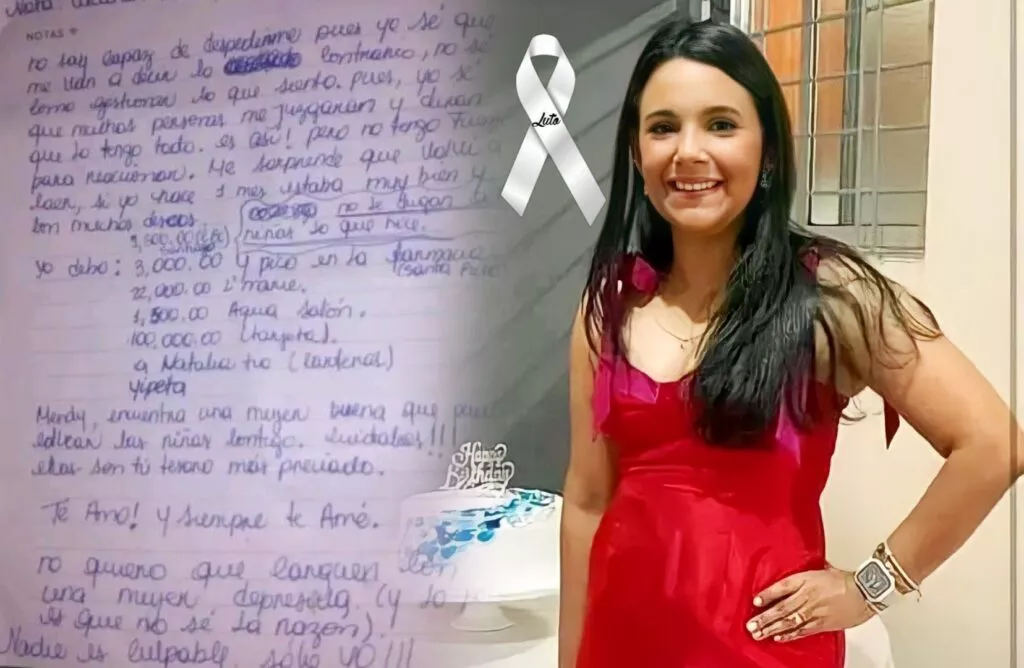 NOTAS
no soy capaz de despedirme pues yo sé que
me van a decir lo contrario, no sé
como gestionar lo que siento. pues, yo sé
que muchas personas me juzgaran y diran
que lo tengo todo. es así! pero no tengo
para reaccionar. Me sorprende que volví a
caer, si yo hace 1 mes estaba muy bien y
con muchos deseos.
no le digan a
niñas lo que hice.
yo debo: 3,000.00 y pico en la farmacia
22,000.00 L'marie.
1,500.00 Agua salón.
100,000.00 (tarjeta).
a Natalia tio (cardenas)
yipeta
Mendy, encuentra una mujer buena que
educar las niñas contigo. cuidalas!!!
ellas son tú tesoro más preciado.
Te Amo! y siempre te Amé.
no quiero que carguen con
una mujer depresiva. (y lo
es que no sé la razón).
Nadie es culpable, solo yo!!!
Luto
Happy
Birthday